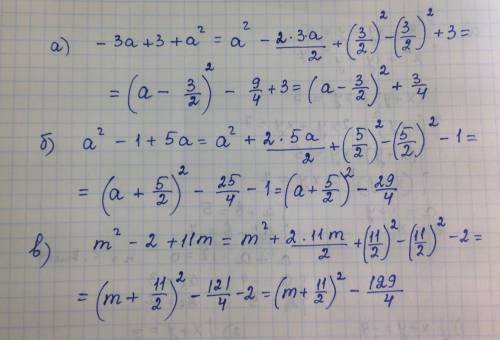 а) - 3a + 3 + a² = a² - \frac{2 · 3 · a}{2} + (\frac{3}{2})² - (\frac{3}{2})² + 3 =
= (a - \frac{3}{2})² - \frac{9}{4} + 3 = (a - \frac{3}{2})² + \frac{3}{4}
б) a² - 1 + 5a = a² + \frac{2 · 5a}{2} + (\frac{5}{2})² - (\frac{5}{2})² - 1 =
= (a + \frac{5}{2})² - \frac{25}{4} - 1 = (a + \frac{5}{2})² - \frac{29}{4}
в) m² - 2 + 11m = m² + \frac{2 · 11m}{2} + (\frac{11}{2})² - (\frac{11}{2})² - 2 =
= (m + \frac{11}{2})² - \frac{121}{4} - 2 = (m + \frac{11}{2})² - \frac{129}{4}